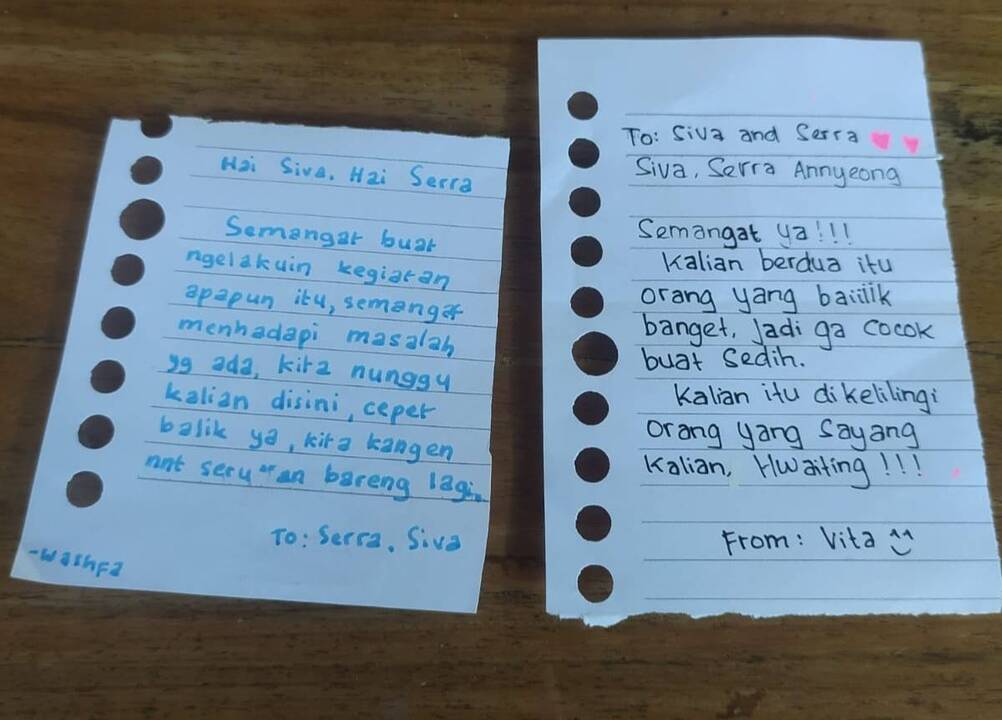 Hai Siva. Hai Serra
Semangat buat
ngelakuin kegiatan
apapun itu, semangat
menhadapi masalah
yg ada, kita nunggu
kalian disini, cepet
balik ya, kita kangen
nnt seru"an bareng lagi.
To: Serra. Siva
-Washfa
To: Siva and Serra
Siva, Serra Annyeong
Semangat ya!!!
Kalian berdua itu
orang yang baiiiik
banget, Jadi ga cocok
buat sedih.
Kalian itu dikelilingi
orang yang Sayang
Kalian, Hwaiting!!!
From: Vita ^^